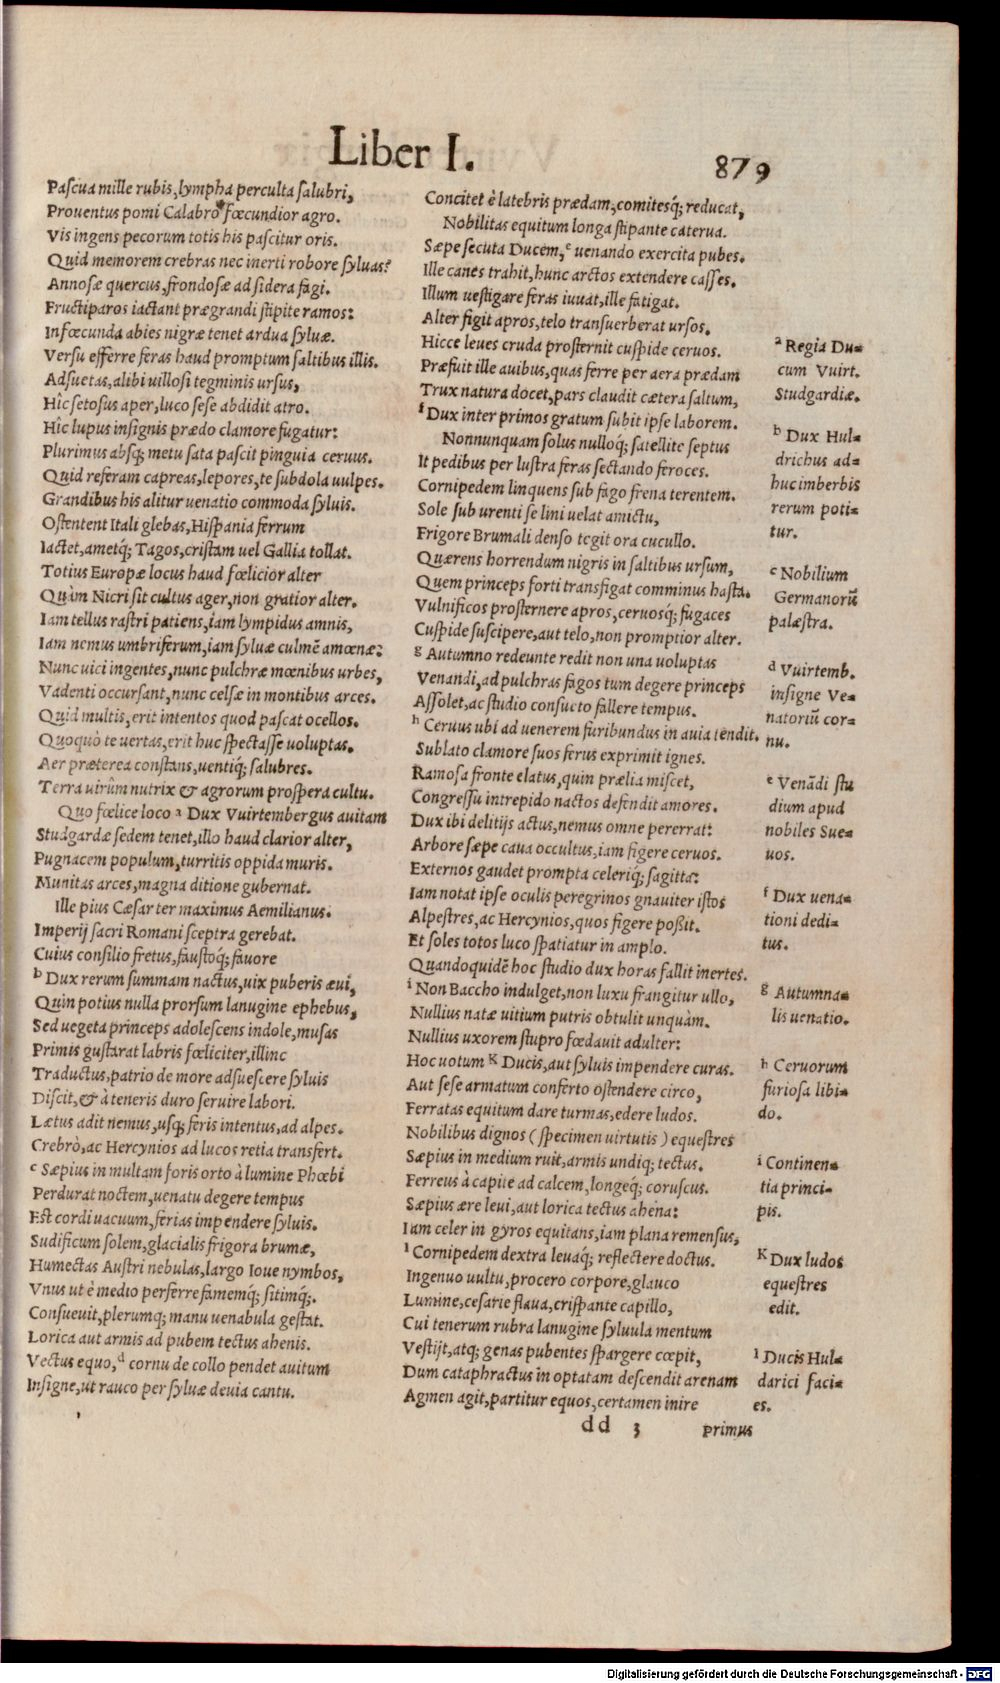 Liber I.
879
Pascua mille rubis, lympha perculta salubri,
Prouentus pomi Calabro fœcundior agro.
Vis ingens pecorum totis his pascitur oris.
Quid memorem crebras nec inerti robore syluas?
Annosæ quercus, frondosæ ad sidera fagi.
Fructiparos iactant prægrandi stipite ramos:
Infœcunda abies nigræ tenet ardua syluæ.
Versu efferre feras haud promptum saltibus illis.
Adsuetas, alibi uillosi tegminis ursus,
Hîc setosus aper, luco sese abdidit atro.
Hîc lupus insignis prædo clamore fugatur:
Plurimus absq; metu sata pascit pinguia ceruus.
Quid referam capreas, lepores, te subdola uulpes.
Grandibus his alitur uenatio commoda syluis.
Ostentent Itali glebas, Hispania ferrum
Iactet, ametq́; Tagos, cristam uel Gallia tollat.
Totius Europæ locus haud fœlicior alter
Quàm Nicri sit cultus ager, non gratior alter.
Iam tellus rastri patiens, iam lympidus amnis,
Iam nemus umbriferum, iam syluæ culmē amœnæ:
Nunc uici ingentes, nunc pulchræ mœnibus urbes,
Vadenti occursant, nunc celsæ in montibus arces.
Quid multis, erit intentos quod pascat ocellos.
Quoquò te uertas, erit huc spectasse uoluptas.
Aer præterea constans, uentiq́; salubres.
Terra uirûm nutrix & agrorum prospera cultu.
Quo fœlice loco ᵃ Dux Vuirtembergus auitam
Studgardæ sedem tenet, illo haud clarior alter,
Pugnacem populum, turritis oppida muris.
Munitas arces, magna ditione gubernat.
Ille pius Cæsar ter maximus Aemilianus.
Imperij sacri Romani sceptra gerebat.
Cuius consilio fretus, faustoq́; fauore
ᵇ Dux rerum summam nactus, uix puberis æui,
Quin potius nulla prorsum lanugine ephebus,
Sed uegeta princeps adolescens indole, musas
Primis gustarat labris fœliciter, illinc
Traductus, patrio de more adsuescere syluis
Discit, & à teneris duro seruire labori.
Lætus adit nemus, usq; feris intentus, ad alpes.
Crebrò, ac Hercynios ad lucos retia transfert.
ᶜ Sæpius in multam foris orto à lumine Phœbi
Perdurat noctem, uenatu degere tempus
Est cordi uacuum, ferias impendere syluis.
Sudificum solem, glacialis frigora brumæ,
Humectas Austri nebulas, largo Ioue nymbos,
Vnus ut è medio perferre famemq́; sitimq́;.
Consueuit, plerumq; manu uenabula gestat.
Lorica aut armis ad pubem tectus ahenis.
Vectus equo, ᵈ cornu de collo pendet auitum
Insigne, ut rauco per syluæ deuia cantu.
Concitet è latebris prædam, comitesq́; reducat,
Nobilitas equitum longa stipante caterua.
Sæpe secuta Ducem, ᵉ uenando exercita pubes.
Ille canes trahit, hunc arctos extendere casses.
Illum uestigare feras iuuat, ille fatigat.
Alter figit apros, telo transuerberat ursos.
Hicce leues cruda prosternit cuspide ceruos.
Præfuit ille auibus, quas ferre per aera prædam
Trux natura docet, pars claudit cætera saltum,
ᶠ Dux inter primos gratum subit ipse laborem.
Nonnunquam solus nulloq́; satellite septus
It pedibus per lustra feras sectando feroces.
Cornipedem linquens sub fago frena terentem.
Sole sub urenti se lini uelat amictu,
Frigore Brumali denso tegit ora cucullo.
Quærens horrendum nigris in saltibus ursum,
Quem princeps forti transfigat comminus hasta.
Vulnificos prosternere apros, ceruosq́; fugaces
Cuspide suscipere, aut telo, non promptior alter.
ᵍ Autumno redeunte redit non una uoluptas
Venandi, ad pulchras fagos tum degere princeps
Assolet, ac studio consueto fallere tempus.
ʰ Ceruus ubi ad uenerem furibundus in auia tendit.
Sublato clamore suos ferus exprimit ignes.
Ramosa fronte elatus, quin prælia miscet,
Congressu intrepido nactos defendit amores.
Dux ibi delitijs actus, nemus omne pererrat:
Arbore sæpe caua occultus, iam figere ceruos.
Externos gaudet prompta celeriq́; sagitta:
Iam notat ipse oculis peregrinos gnauiter istos
Alpestres, ac Hercynios, quos figere poßit.
Et soles totos luco spatiatur in amplo.
Quandoquidē hoc studio dux horas fallit inertes.
ⁱ Non Baccho indulget, non luxu frangitur ullo,
Nullius natæ uitium putris obtulit unquàm.
Nullius uxorem stupro fœdauit adulter:
Hoc uotum ᴷ Ducis, aut syluis impendere curas.
Aut sese armatum conferto ostendere circo,
Ferratas equitum dare turmas, edere ludos.
Nobilibus dignos (specimen uirtutis) equestres
Sæpius in medium ruit, armis undiq; tectus.
Ferreus à capite ad calcem, longeq́; coruscus.
Sæpius ære leui, aut lorica tectus ahena:
Iam celer in gyros equitans, iam plana remensus,
ˡ Cornipedem dextra leuaq́; reflectere doctus.
Ingenuo uultu, procero corpore, glauco
Lumine, cesarie flaua, crispante capillo,
Cui tenerum rubra lanugine syluula mentum
Vestijt, atq; genas pubentes spargere cœpit,
Dum cataphractus in optatam descendit arenam
Agmen agit, partitur equos, certamen inire
dd 3
primus
ᵃ Regia Du-
cum Vuirt.
Studgardiæ.
ᵇ Dux Hul-
drichus ad-
huc imberbis
rerum poti-
tur.
ᶜ Nobilium
Germanorū
palæstra.
ᵈ Vuirtemb.
insigne Ve-
natoriū cor-
nu.
ᵉ Venādi stu
dium apud
nobiles Sue-
uos.
ᶠ Dux uena-
tioni dedi-
tus.
ᵍ Autumna-
lis uenatio.
ʰ Ceruorum
furiosa libi-
do.
ⁱ Continen-
tia princi-
pis.
ᴷ Dux ludos
equestres
edit.
ˡ Ducis Hul-
darici faci-
es.
Digitalisierung gefördert durch die Deutsche Forschungsgemeinschaft - DFG